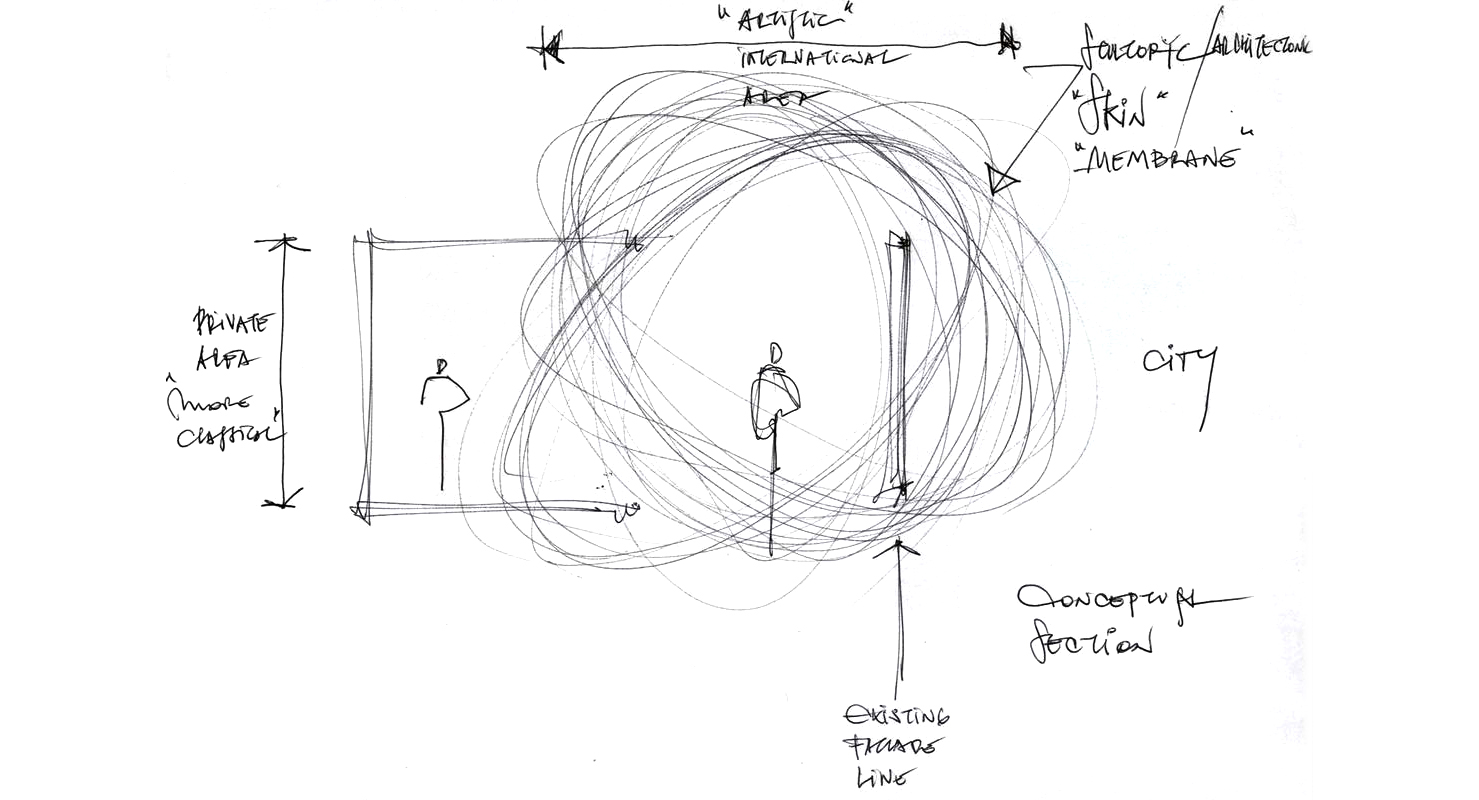 "ARTISTIC"
INTERNATIONAL
AREA
SCULTORIC / ARCHITECTONIC
"SKIN"
"MEMBRANE"
PRIVATE
AREA
"MORE
CLASSICAL"
CITY
CONCEPTUAL
SECTION
EXISTING
FACCADE
LINE